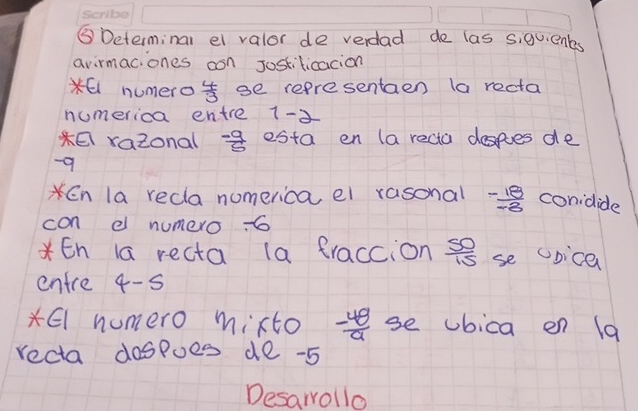 Scribe
⑤ Determinar el valor de verdad de las siguientes
avirmaciones con Jostificacion
*El numero 4/3 se representaen la recta
numerica entre 1-2
*El razonal -9/8 esta en la recta despues de
-9
*En la recta numerica el rasonal -18/-3 conidide
con el numero -6
*En la recta la fraccion 50/15 se ubica
entre 4-5
*El numero mixto -48/9 se ubica en la
recta dospues de -5
Desarrollo